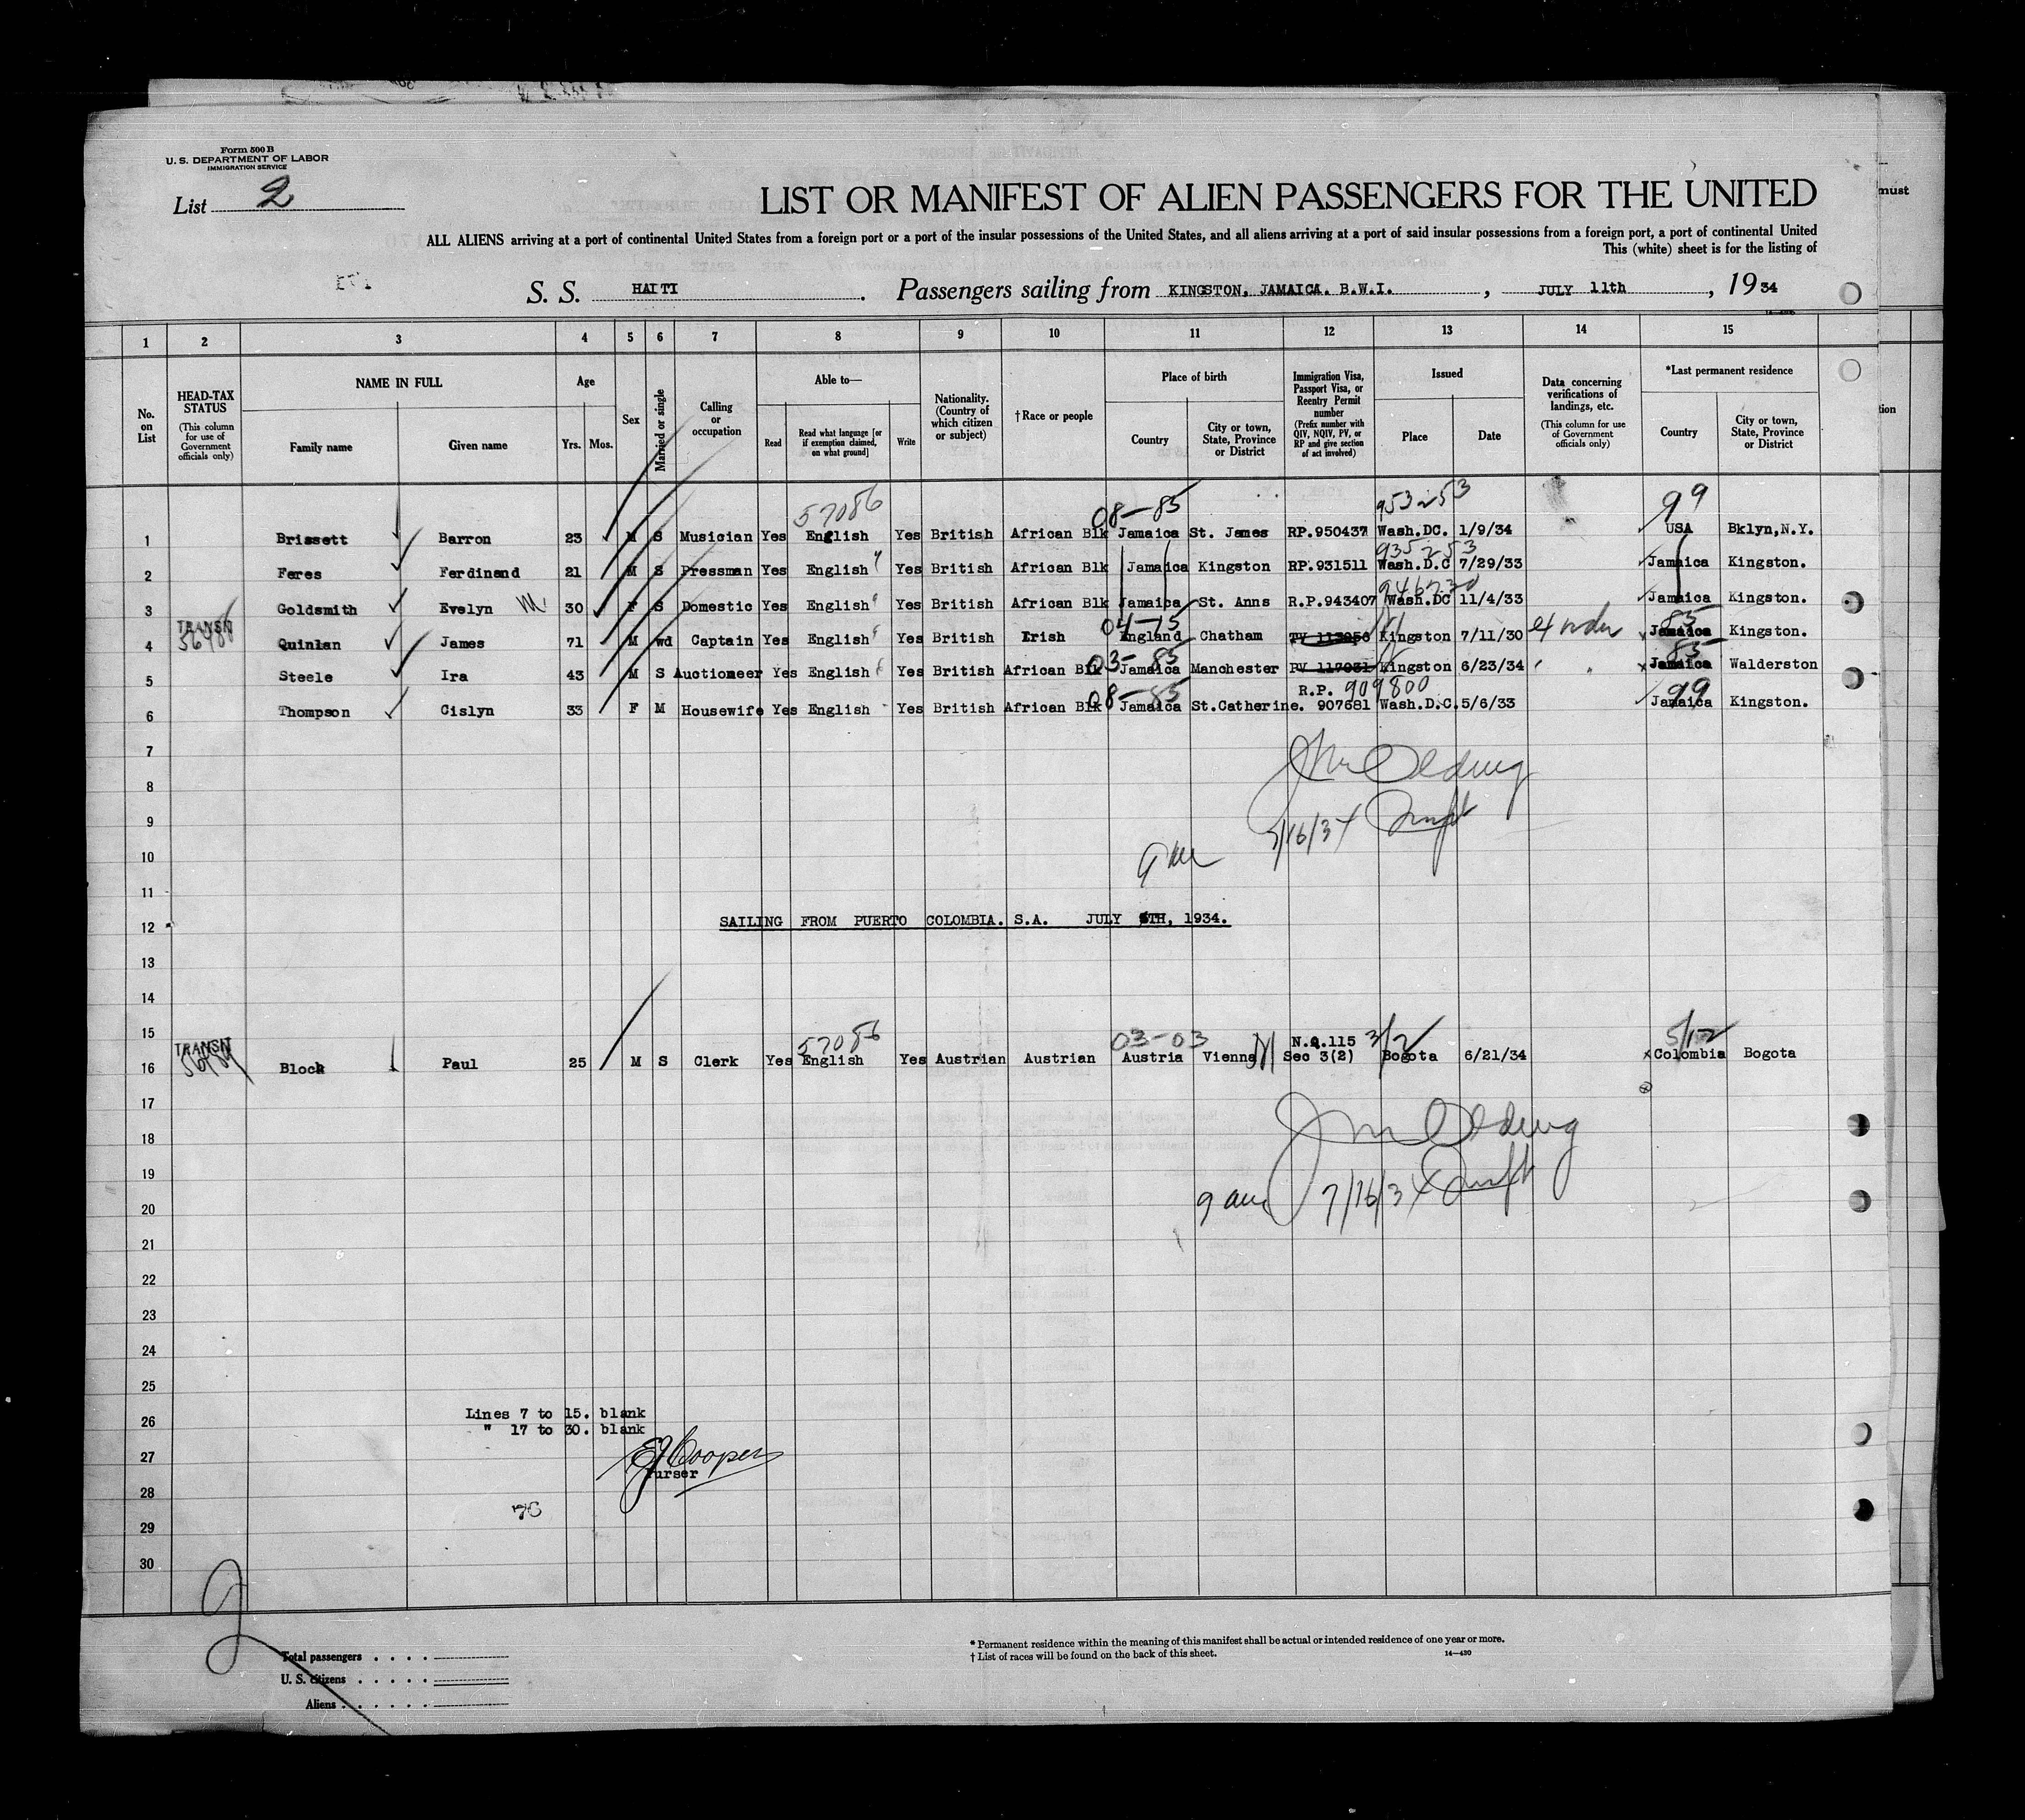 Form 500 B
U. S. DEPARTMENT OF LABOR
IMMIGRATION SERVICE
List 2
LIST OR MANIFEST OF ALIEN PASSENGERS FOR THE UNITED
must
ALL ALIENS arriving at a port of continental United States from a foreign port or a port of the insular possessions of the United States, and all aliens arriving at a port of said insular possessions from a foreign port, a port of continental United
This (white) sheet is for the listing of
S. S. HAITI. Passengers sailing from KINGSTON, JAMAICA. B.W.I., JULY 11th, 1934
1 2 3 4 5 6 7 8 9 10 11 12 13 14 15
No. on List
HEAD-TAX STATUS (This column for use of Government officials only)
NAME IN FULL Family name Given name
Age Yrs. Mos.
Sex
Married or single
Calling or occupation
Able to— Read Read what language [or if exemption claimed, on what ground] Write
Nationality. (Country of which citizen or subject)
†Race or people
Place of birth Country City or town, State, Province or District
Immigration Visa, Passport Visa, or Reentry Permit number (Prefix number with QIV, NQIV, PV, or RP and give section of act involved)
Issued Place Date
Data concerning verifications of landings, etc. (This column for use of Government officials only)
*Last permanent residence Country City or town, State, Province or District
tion
57086 08-85 953253 99
1 Brissett Barron 23 M S Musician Yes English Yes British African Blk Jamaica St. James RP.950437 Wash.DC. 1/9/34 USA Bklyn,N.Y.
935253
2 Feres Ferdinand 21 M S Pressman Yes English Yes British African Blk Jamaica Kingston RP.931511 Wash.D.C 7/29/33 Jamaica Kingston.
3 Goldsmith Evelyn M 30 F S Domestic Yes English Yes British African Blk Jamaica St. Anns R.P.943407 Wash.DC 11/4/33 Jamaica Kingston.
TRANSIT 04-15 85
4 Quinlan James 71 M wd Captain Yes English Yes British Irish England Chatham Kingston 7/11/30 Jamaica Kingston.
03-85 85
5 Steele Ira 43 M S Auctioneer Yes English Yes British African Blk Jamaica Manchester Kingston 6/23/34 Jamaica Walderston
08-85 R.P. 909800 99
6 Thompson Cislyn 33 F M Housewife Yes English Yes British African Blk Jamaica St.Catherine. 907681 Wash.D.C. 5/6/33 Jamaica Kingston.
7
8
9 7/16/34
10
11
12 SAILING FROM PUERTO COLOMBIA. S.A. JULY TH, 1934.
13
14
15
TRANSIT 57086 03-03 N.Q.115 3/2 5/12
16 Block Paul 25 M S Clerk Yes English Yes Austrian Austrian Austria Vienna Sec 3(2) Bogota 6/21/34 Colombia Bogota
17
18
19
20 9 am 7/16/34
21
22
23
24
25
26 Lines 7 to 15. blank
" 17 to 30. blank
27 EJ Cooper
Purser
28
76
29
30
Total passengers
U. S. citizens
Aliens
* Permanent residence within the meaning of this manifest shall be actual or intended residence of one year or more.
† List of races will be found on the back of this sheet.
14—430